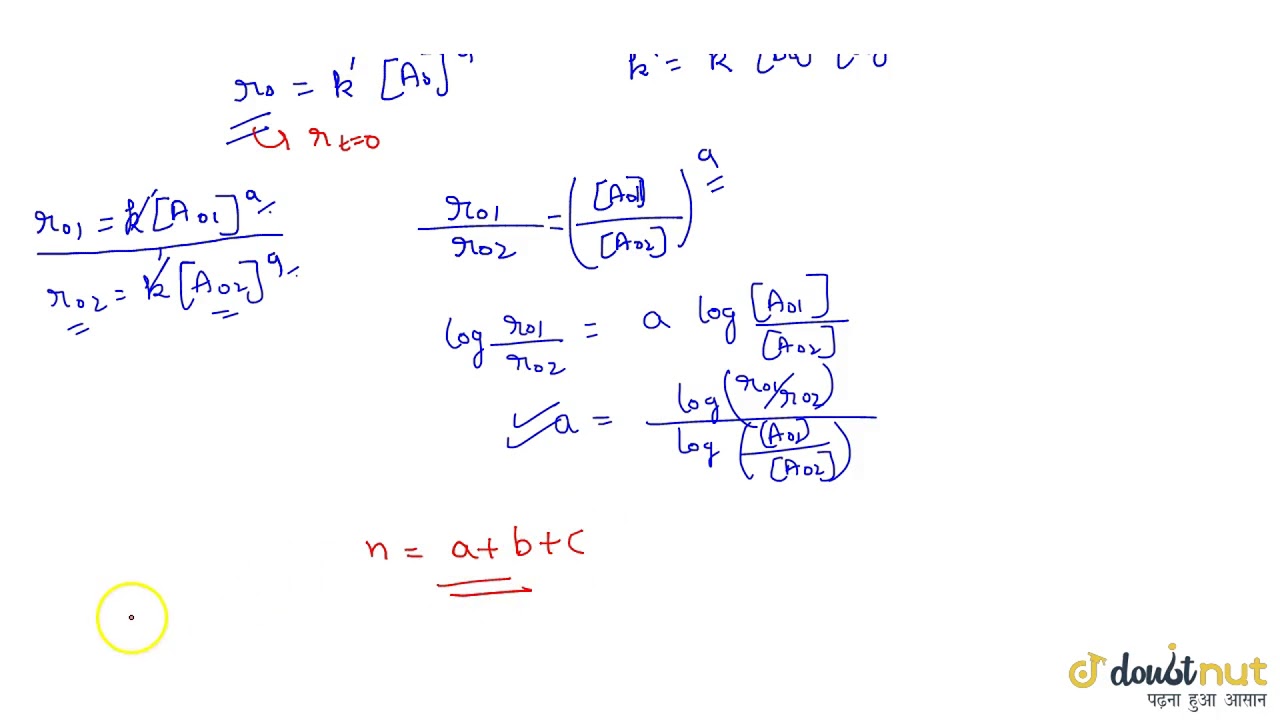 r₀ = k' [A₀]ᵃ
k' = k
r t=0
r₀₁ = k' [A₀₁]ᵃ
r₀₂ = k' [A₀₂]ᵃ
r₀₁ / r₀₂ = ([A₀₁] / [A₀₂])ᵃ
log r₀₁ / r₀₂ = a log [A₀₁] / [A₀₂]
a = log (r₀₁/r₀₂) / log ([A₀₁] / [A₀₂])
n = a+b+c
doubtnut
पढ़ना हुआ आसान